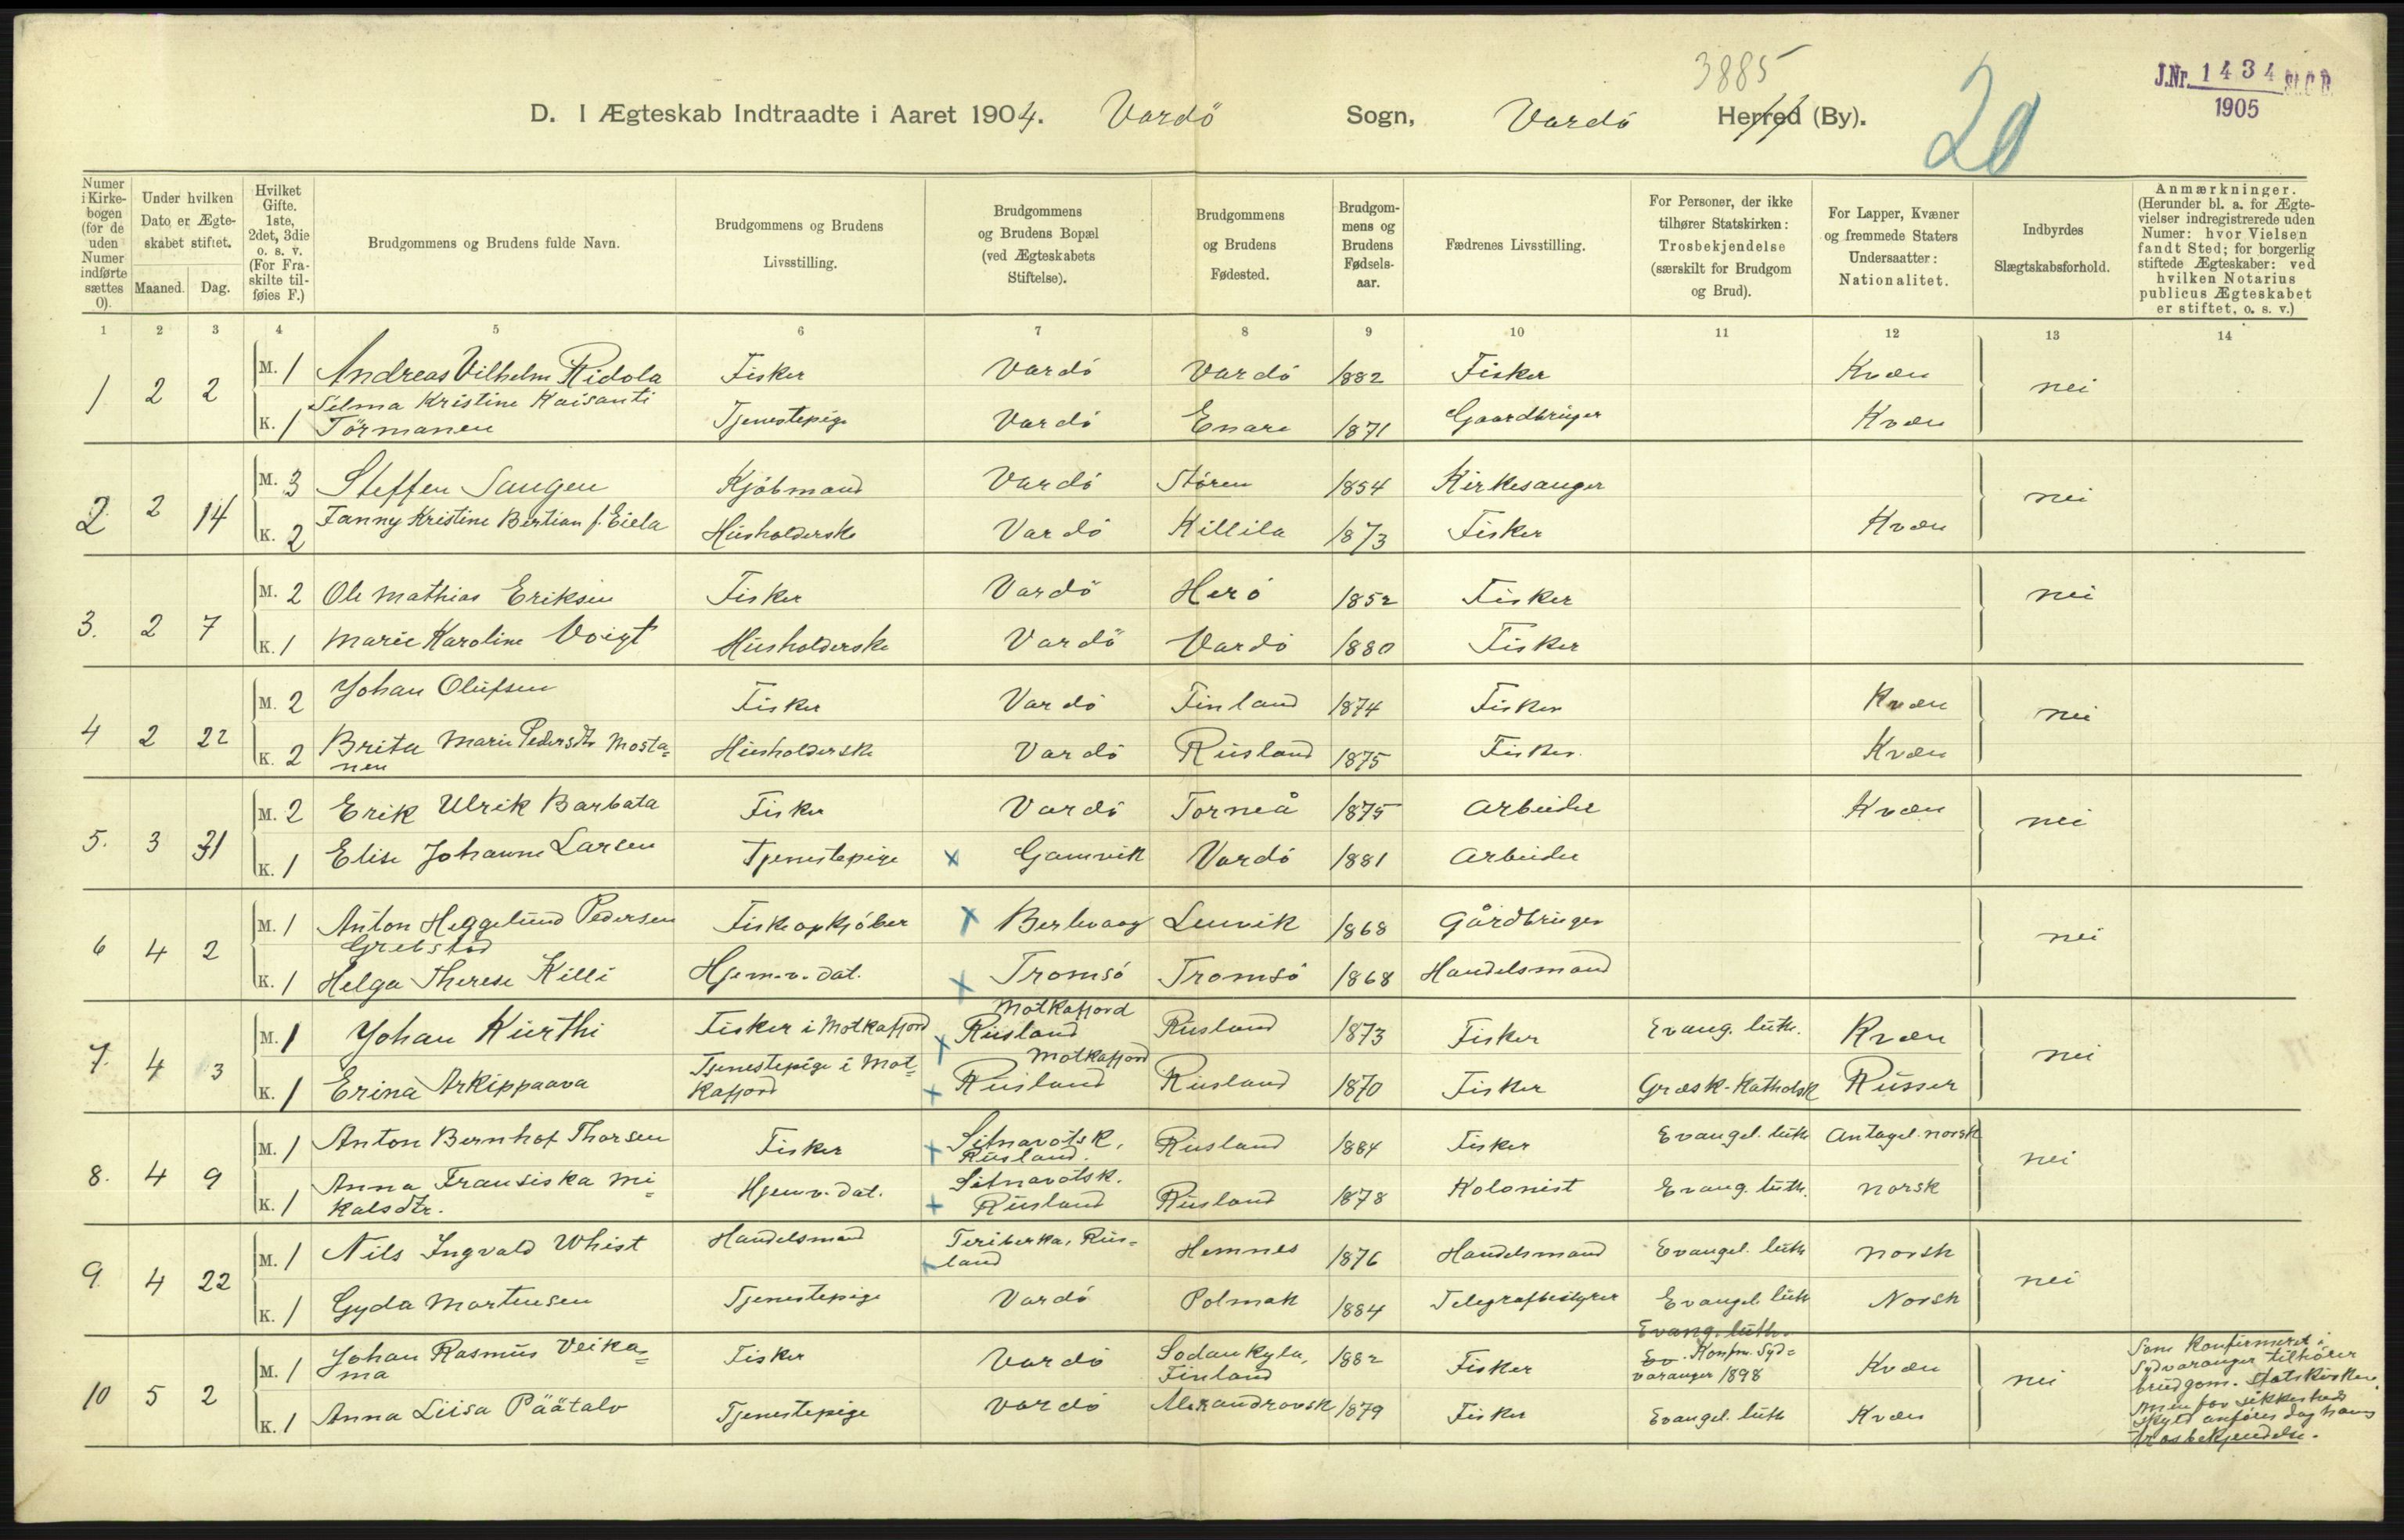 3885
J.Nr. 1434 St.C.B.
1905
D. I Ægteskab Indtraadte i Aaret 1904. Vardö Sogn, Vardö Herred (By). 20
Numer i Kirkebogen (for de uden Numer indførte sættes 0).
Under hvilken Dato er Ægteskabet stiftet.
Maaned. Dag.
Hvilket Gifte. 1ste, 2det, 3die o. s. v. (For Fraskilte tilføies F.)
Brudgommens og Brudens fulde Navn.
Brudgommens og Brudens Livsstilling.
Brudgommens og Brudens Bopæl (ved Ægteskabets Stiftelse).
Brudgommens og Brudens Fødested.
Brudgommens og Brudens Fødselsaar.
Fædrenes Livsstilling.
For Personer, der ikke tilhører Statskirken: Trosbekjendelse (særskilt for Brudgom og Brud).
For Lapper, Kvæner og fremmede Staters Undersaatter: Nationalitet.
Indbyrdes Slægtskabsforhold.
Anmærkninger. (Herunder bl. a. for Ægtevielser indregistrerede uden Numer: hvor Vielsen fandt Sted; for borgerlig stiftede Ægteskaber: ved hvilken Notarius publicus Ægteskabet er stiftet, o. s. v.)
1 2 3 4 5 6 7 8 9 10 11 12 13 14
1 2 2 M. 1 Andreas Vilhelm Ridola Fisker Vardö Vardö 1882 Fisker Kvæn nei
K. 1 Selma Kristine Kaisanti Törmanen Tjenestepige Vardö Enare 1871 Gaardbruger Kvæn
2. 2 14 M. 3 Steffen Saugen Kjöbmand Vardö Stören 1854 Kirkesanger nei
K. 2 Fanny Kristine Bertian f. Eiela Husholderske Vardö Killila 1873 Fisker Kvæn
3. 2 7 M. 2 Ole Mathias Eriksen Fisker Vardö Herö 1852 Fisker nei
K. 1 Marie Karoline Voigt Husholderske Vardö Vardö 1880 Fisker
4 2 22 M. 2 Johan Olufsen Fisker Vardö Finland 1874 Fisker Kvæn nei
K. 2 Brita Marie Pedersdtr Mosta=
nen Husholderske Vardö Rusland 1875 Fisker. Kvæn
5. 3 31 M. 2 Erik Ulrik Barbata Fisker Vardö Torneå 1875 Arbeider Kvæn nei
K. 1 Elise Johanne Larsen Tjenestepige x Gamvik Vardö 1881 Arbeider
6 4 2 M. 1 Anton Heggelund Pedersen
Grebstad Fiskeopkjöber x Berlevaag Lenvik 1868 Gårdbruger nei
K. 1 Helga Therese Killi Hjem.v. dat. x Tromsö Tromsö 1868 Handelsmand
7. 4 3 M. 1 Johan Kurthi Fisker i Motkafjord x Motkafjord
Rusland Rusland 1873 Fisker Evang. luth. Kvæn nei
K. 1 Erina Arkippaava Tjenestepige i Mot=
kafjord x Motkafjord
Rusland Rusland 1870 Fisker Græsk-Katholsk Russer
8. 4 9 M. 1 Anton Bernhof Thorsen Fisker x Sitnavotsk,
Rusland. Rusland 1884 Fisker Evangel. luth Antagel. norsk nei
K. 1 Anna Fransiska Mi=
kalsdtr. Hjemv. dat. + Sitnavotsk.
Rusland Rusland 1878 Kolonist Evang. luth. Norsk
9. 4 22 M. 1 Nils Ingvald Whist Handelsmand x Teriberka, Rus=
land Hemnes 1876 Handelsmand Evangel. luth Norsk nei
K. 1 Gyda Mortensen Tjenestepige Vardö Polmak 1884 Telegrafbestyrer Evangel. luth Norsk
10 5 2 M. 1 Johan Rasmus Veika=
ma Fisker Vardö Sodankyla,
Finland 1882 Fisker Evang. luth.
Ev. Konfm. Syd=
varanger 1898 Kvæn nei
K. 1 Anna Liisa Päätalo Tjenestepige Vardö Alexandrovsk 1879 Fisker Evangel. luth Kvæn
Som konfirmeret i
Sydvaranger tilhører
brudgom. Statskirken.
Men for sikkerheds
skyld anføres dog hans
trosbekjendelse.